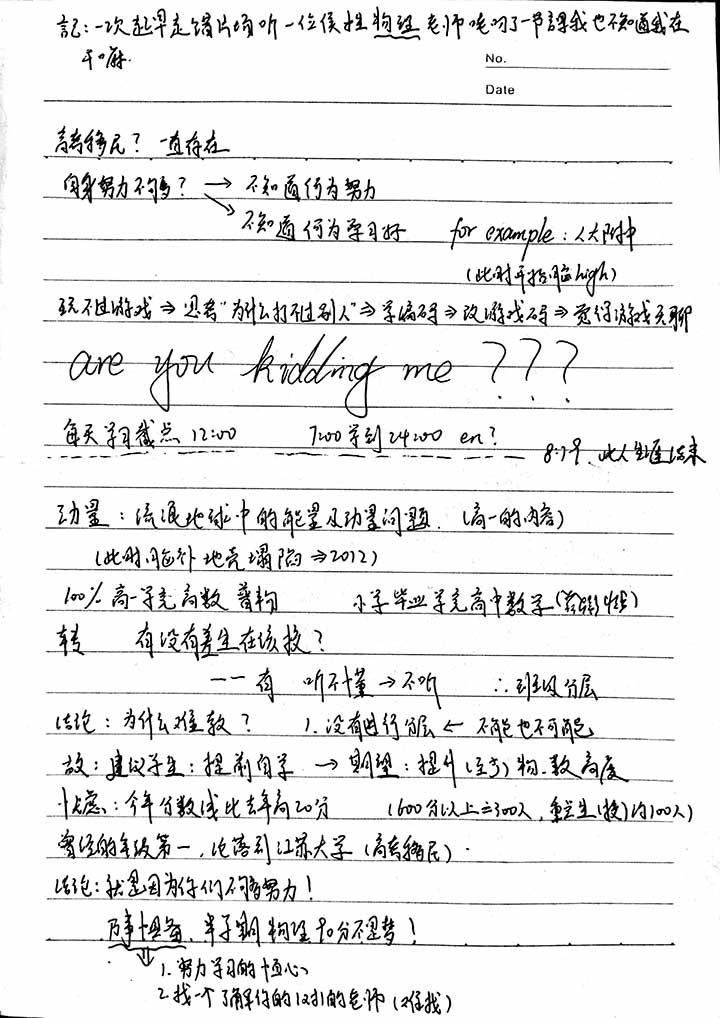 記：一次赶早走错片场听一位侯姓物理老师唠叨了一节課我也不知道我在
干嘛.
No.
Date
高考移民？一直存在
自身努力不够？→不知道何为努力
↘不知道何为学习好 for example：人大附中
(此时平指脑high)
玩不过游戏⇒思考“为什么打不过别人”⇒学编码⇒改游戏码⇒觉得游戏无聊
are you kidding me ???
每天学习截点 12:00 7:00学到24:00 en?
此人生涯结束
动量：流浪地球中的能量及动量问题.（高一的内容）
（此时脑补地壳塌陷⇒2012）
100% 高一学完高数 普物 小学毕业学完高中数学
转 有没有差生在该校？
——有 听不懂→不听 ∴班级分层
结论：为什么难教？ 1.没有进行分层← 不能也不可能
故：建议学生：提前自学 →期望：提升(至少)物.数高度
忧虑：今年分数线比去年高20分 (600分以上=300人，重点生(校)约100人)
曾经的年级第一，沦落到江苏大学（高考移民）.
结论：就是因为你们不够努力！
万事俱备，半学期物理90分不是梦！
⇓
1.努力学习的恒心
2.找一个了解你的1对1的老师（难找）